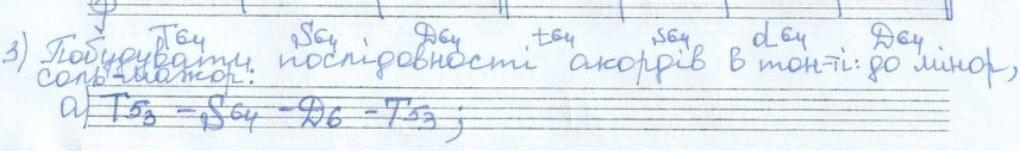 T64 S64 D64 t64 s64 d64 D64
3) Побудувати послідовності акордів в тон-ті: до мінор,
соль-мажор:
а) T53 - S64 - D6 - T53;